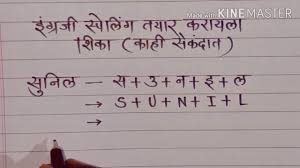 Made with KINEMASTER
इंग्रजी स्पेलिंग तयार करायला
शिका (काही सेकंदात)
सुनिल — स+उ+न+इ+ल
→ S+U+N+I+L
→